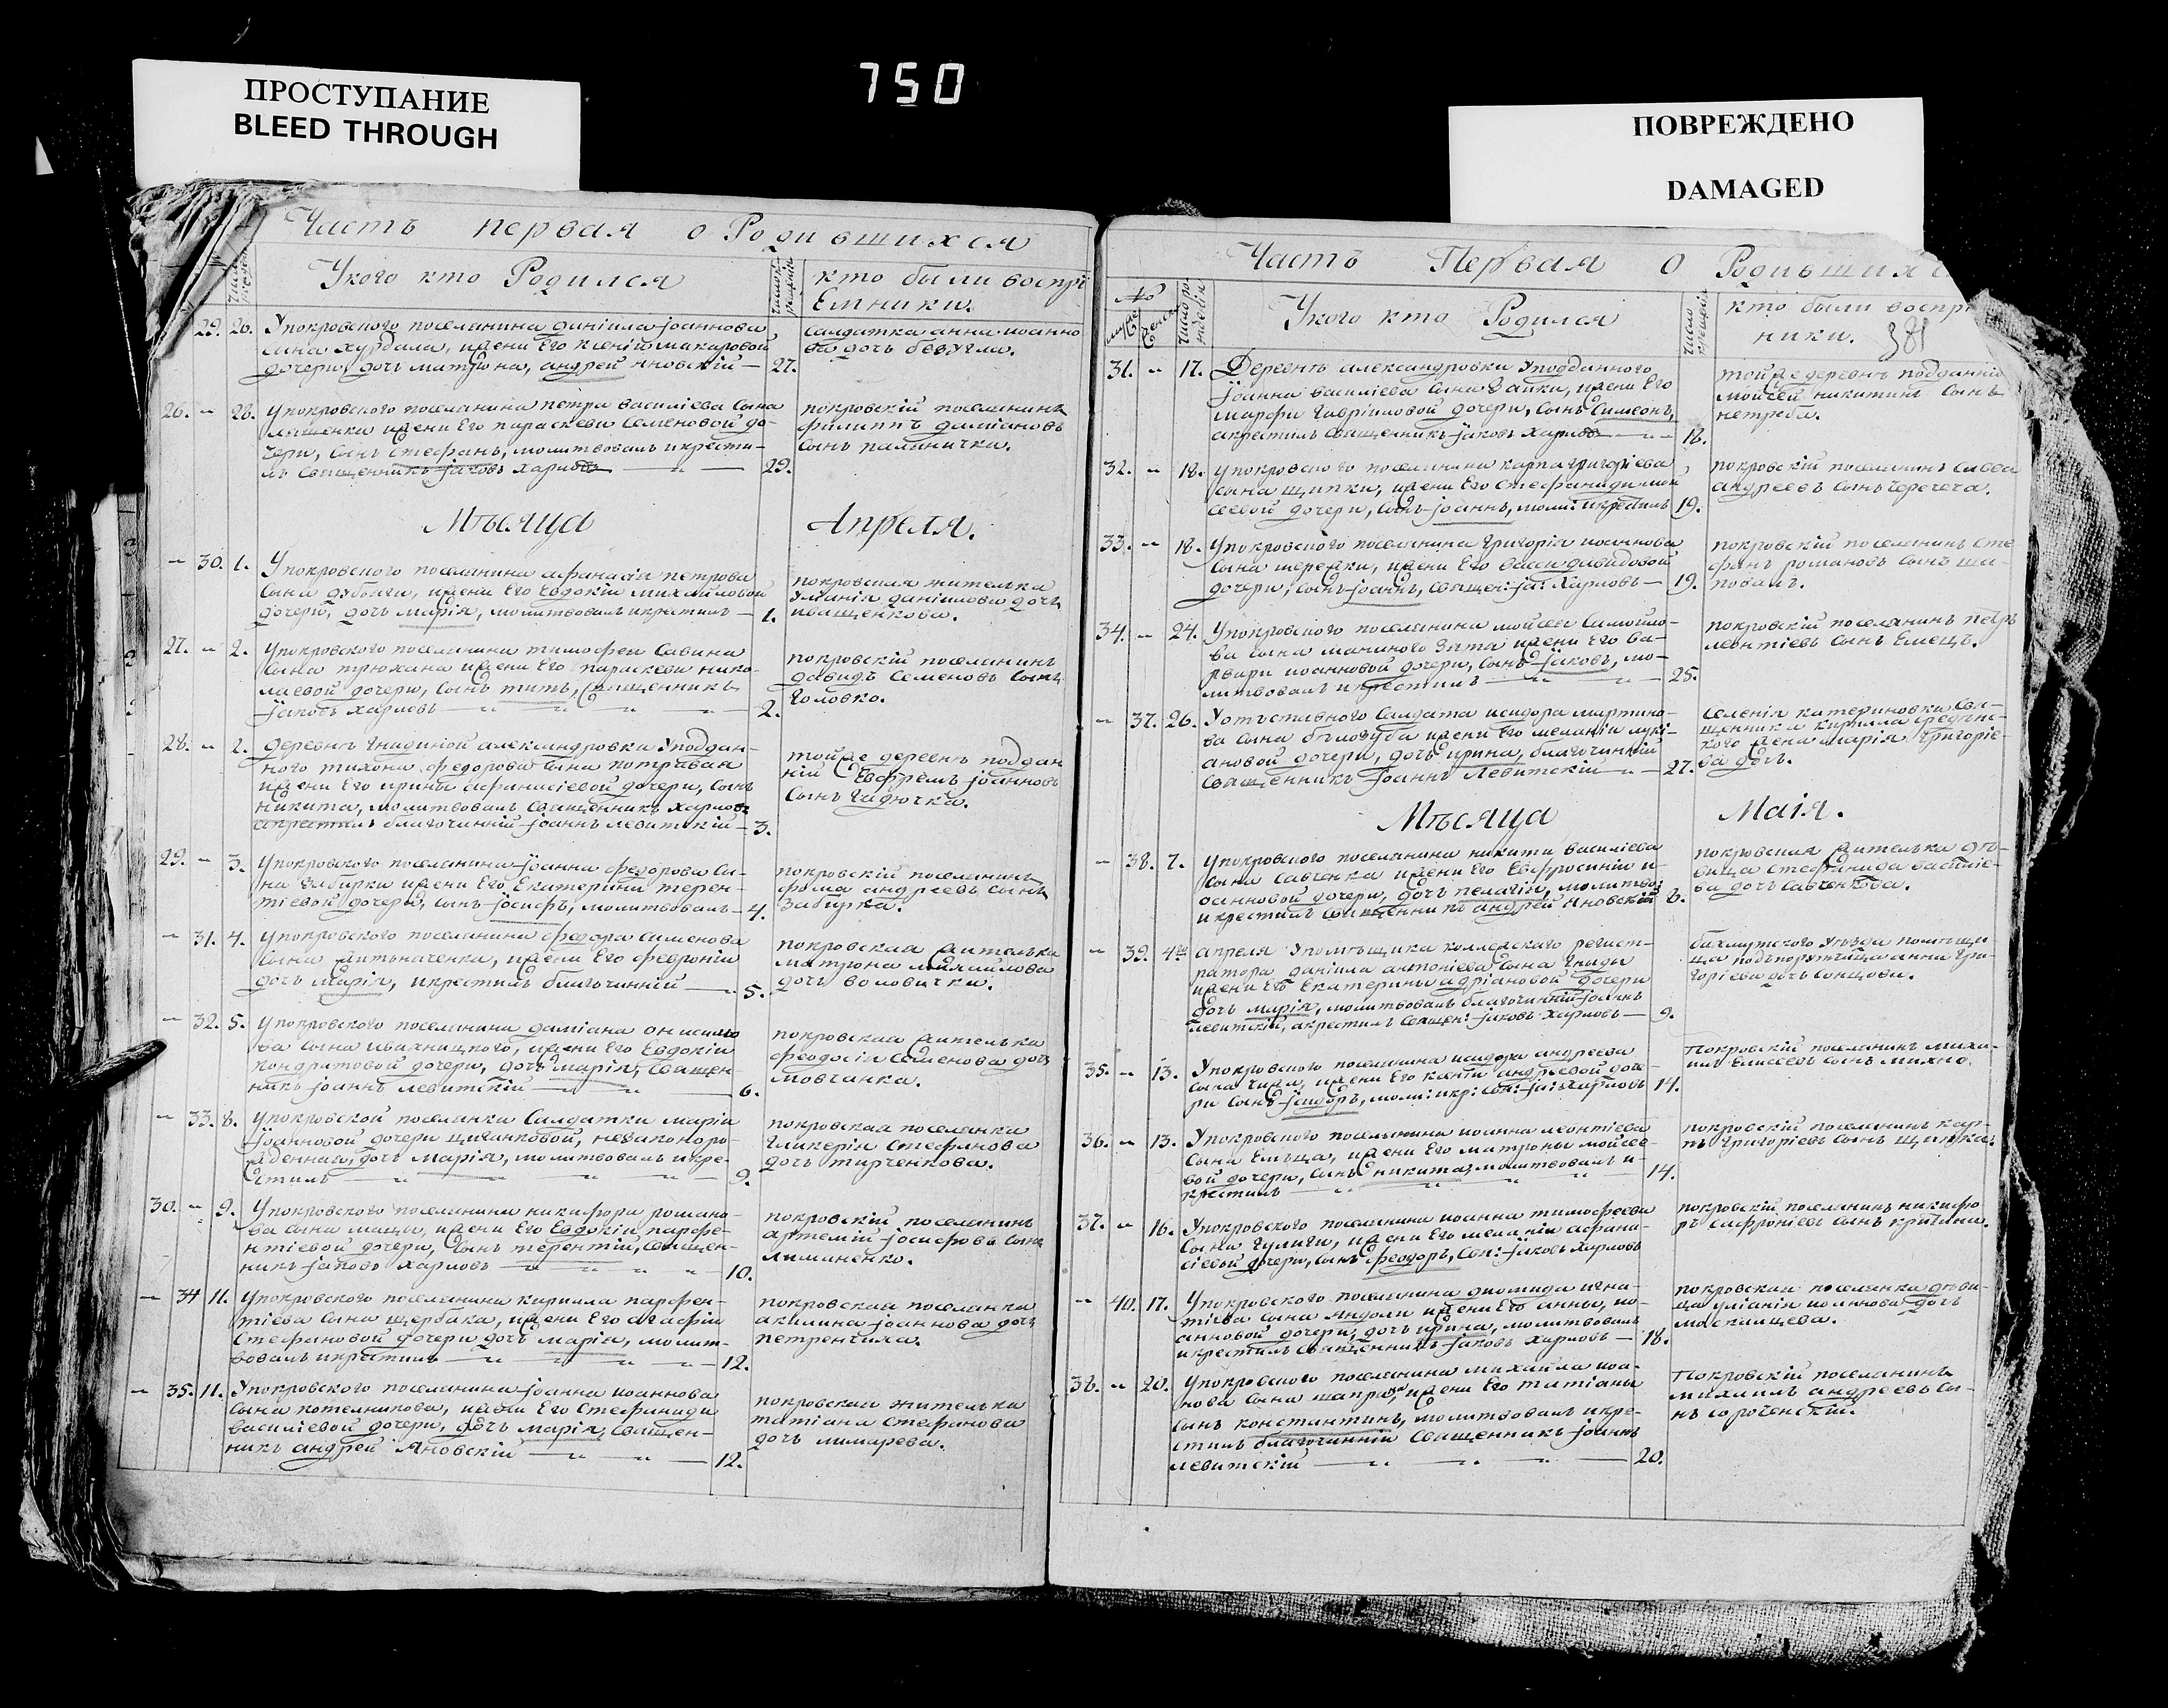 ПРОСТУПАНИЕ
BLEED THROUGH
750
ПОВРЕЖДЕНО
DAMAGED
Часть первая о Родившихся
Укого кто Родился
кто были воспрі
Емники.
29. 20. Упокровского поселянина даніила іоаннова
сына хурдала, жени Его ксеніи макаровой
дочери, дочь матрона, андрей яновскій — 27.
салдатка анна иоанно
ва дочь
26. — 28. Упокровского поселянина петра василіева сына
жени Его параскеви семеновой до-
чери, сынъ стефанъ, молитвовалъ икрести-
лъ священникъ іаковъ харловъ — 29.
покровскій поселянинъ
филиппъ даміановъ
сынъ паляничка.
Мѣсяца Апреля.
— 30. 1. Упокровского поселянина афанасія петрова
сына жени Его Евдокіи михайловой
дочери, дочь марія, молитвовалъ икрестилъ — 1.
покровская жителька
уліанія даніилова дочь
иващенкова.
27. — 2. Упокровского поселянина тимофея савина
сына трюхана жени Его параскеви нико-
лаевой дочери, сынъ титъ, священникъ
іаковъ харловъ — 2.
покровскій поселянинъ
давидъ Семеновъ сынъ
головко.
28. — 2. деревнѣ гнадиной александровки Уподдан-
ного тихона федорова сына
жени Его ирины афанасіевой дочери, сынъ
никита, молитвовалъ священникъ харловъ
акрестилъ благочинній іоаннъ левитскій — 3.
тойже деревнѣ поддан
ній Евфремъ іоанновъ
сынъ гадючка.
29. — 3. Упокровского поселянина іоанна федорова сы-
на забирки жени Его Екатерини терен-
тіевой дочери, сынъ іосифъ, молитвовалъ — 4.
покровскій поселянинъ
фома андреевъ сынъ
забирка.
— 31. 4. Упокровского поселянина федора симеонова
сына литвиненка, жени Его февроніи
дочь марія, икрестилъ благочинній — 5.
покровская жителька
матрона михаилова
дочь воловичка.
— 32. 5. Упокровского поселянина даміана
ва сына жени Его Евдокіи
кондратовой дочери, дочь марія, священ-
никъ іоаннъ левитскій — 6.
покровская жителька
феодосія семенова дочь
мовчанка.
— 33. 8. Упокровской поселянки Салдатки маріи
іоанновой дочери циганковой, незаконоро-
жденная, дочь марія, молитвовалъ икре-
стилъ — 9.
покровская поселянка
гликерія стефанова
дочь тирченкова.
30. — 9. Упокровского поселянина никифора романо-
ва сына мащи, жени Его Евдокіи парфе-
нтіевой дочери, сынъ терентій, священ-
никъ іаковъ харловъ — 10.
покровскій поселянинъ
артемій іосифовъ сынъ
лиманенко.
— 34 11. Упокровского поселянина кирилла парфен-
тіева сына щербака, жени Его агафіи
стефановой дочери дочь марія, молит-
вовалъ икрестилъ — 12.
покровская поселянка
акилина іоаннова дочь
петренчиха.
— 35. 11. Упокровского поселянина іоанна иоаннова
сына котелникова, жени Его стефаниди
василіевой дочери, дочь марія, священ-
никъ андрей Яновскій — 12.
покровская жителька
татіана стефанова
дочь лимарева.
Часть Первая о Родивших
Укого кто Родился
кто были воспрі
ники. 381
31. — 17. Деревнѣ александровки Уподданного
іоанна василіева сына Зайки, жени Его
марфи гавріиловой дочери, сынъ симеонъ,
акрестилъ священникъ іаковъ харловъ — 18.
тойже деревнѣ подданній
мойсей никитинъ сынъ
нетреба.
32. — 18. Упокровского поселянина карпа григоріева
сына щипки, жени Его стефаниди мои
сеевой дочери, сынъ іоаннъ, моли: икрестилъ 19.
покровскій поселянинъ савва
андреевъ сынъ черечеча.
33. — 18. Упокровского поселянина григорія иоаннова
сына шереджи, жени Его васси давидовой
дочери, сынъ іоаннъ, священ: іа: Харловъ — 19.
покровскій поселянинъ сте
фанъ романовъ сынъ ша-
повалъ.
34. — 24. Упокровского поселянина мойсея самойло-
ва сына зятя жени Его ва-
рвари иоанновой дочери, сынъ іаковъ, мо-
литвовалъ икрестилъ — 25.
покровскій поселянинъ петръ
леонтіевъ сынъ Емецъ.
— 37. 26. Уотъставного салдата исидора мартино-
ва сына бѣлозуба жени Его меланіи лукі-
ановой дочери, дочь ирина, благочинній
Священникъ іоаннъ Левитскій — 27.
селенія катериновки свя-
щенника кирилла
кого жена марія григоріе-
ва дочь.
Мѣсяца Маія.
— 38. 7. Упокровского поселянина никити василіева
сына савченка жени Его Евфросиніи и-
оанновой дочери, дочь пелагія, молитво:
икрестилъ священникъ андрей яновскій 8.
покровская жителька дѣ-
вица стефанида василіе-
ва дочь савченкова.
— 39. 4го апреля Упомѣщика коллежского регист-
ратора даніила антоніева сына гнеды
жени Его Екатерины адріановой дочери
дочь марія, молитвовалъ благочинній іоаннъ
левитскій, акрестилъ священ: іаковъ харловъ — 9.
бахмутского уѣзда помѣщи-
ца подъпорутчица анна гри-
горіева дочь сонцова.
35. — 13. Упокровского поселянина исидора андреева
сына жени Его андреевой доче-
ри сынъ ісидоръ, моли: икр: свя: іа: харловъ 14.
покровскій поселянинъ михаи-
илъ Елисеевъ сынъ михно.
36. — 13. Упокровского поселянина иоанна леонтіева
сына Емъца, жени Его матроны мойсее-
вой дочери, сынъ никита, молитвовалъ и-
крестилъ — 14.
покровскій поселянинъ кар-
пъ григоріевъ сынъ щипка.
37. — 16. Упокровского поселянина иоанна тимофеева
сына гулиги, жени Его меланіи афана-
сіевой дочери, сынъ феодоръ, свя: іаковъ харловъ
покровскій поселянинъ никифо
ръ сафроніевъ сынъ
— 40. 17. Упокровского поселянина диомида игна-
тіева сына жени Его анны, ио-
анновой дочери, дочь ирина, молитвовалъ
икрестилъ священникъ іаковъ харловъ — 18.
покровская поселянка дѣви-
ца уліанія иоаннова дочь
38. — 20. Упокровского поселянина михаила иоа-
нова сына жени Его татіаны
сынъ константинъ, молитвовалъ икре-
стилъ благочинній священникъ іоаннъ
левитскій — 20.
покровскій поселянинъ
михаилъ андреевъ сы-
нъ сороченскій.